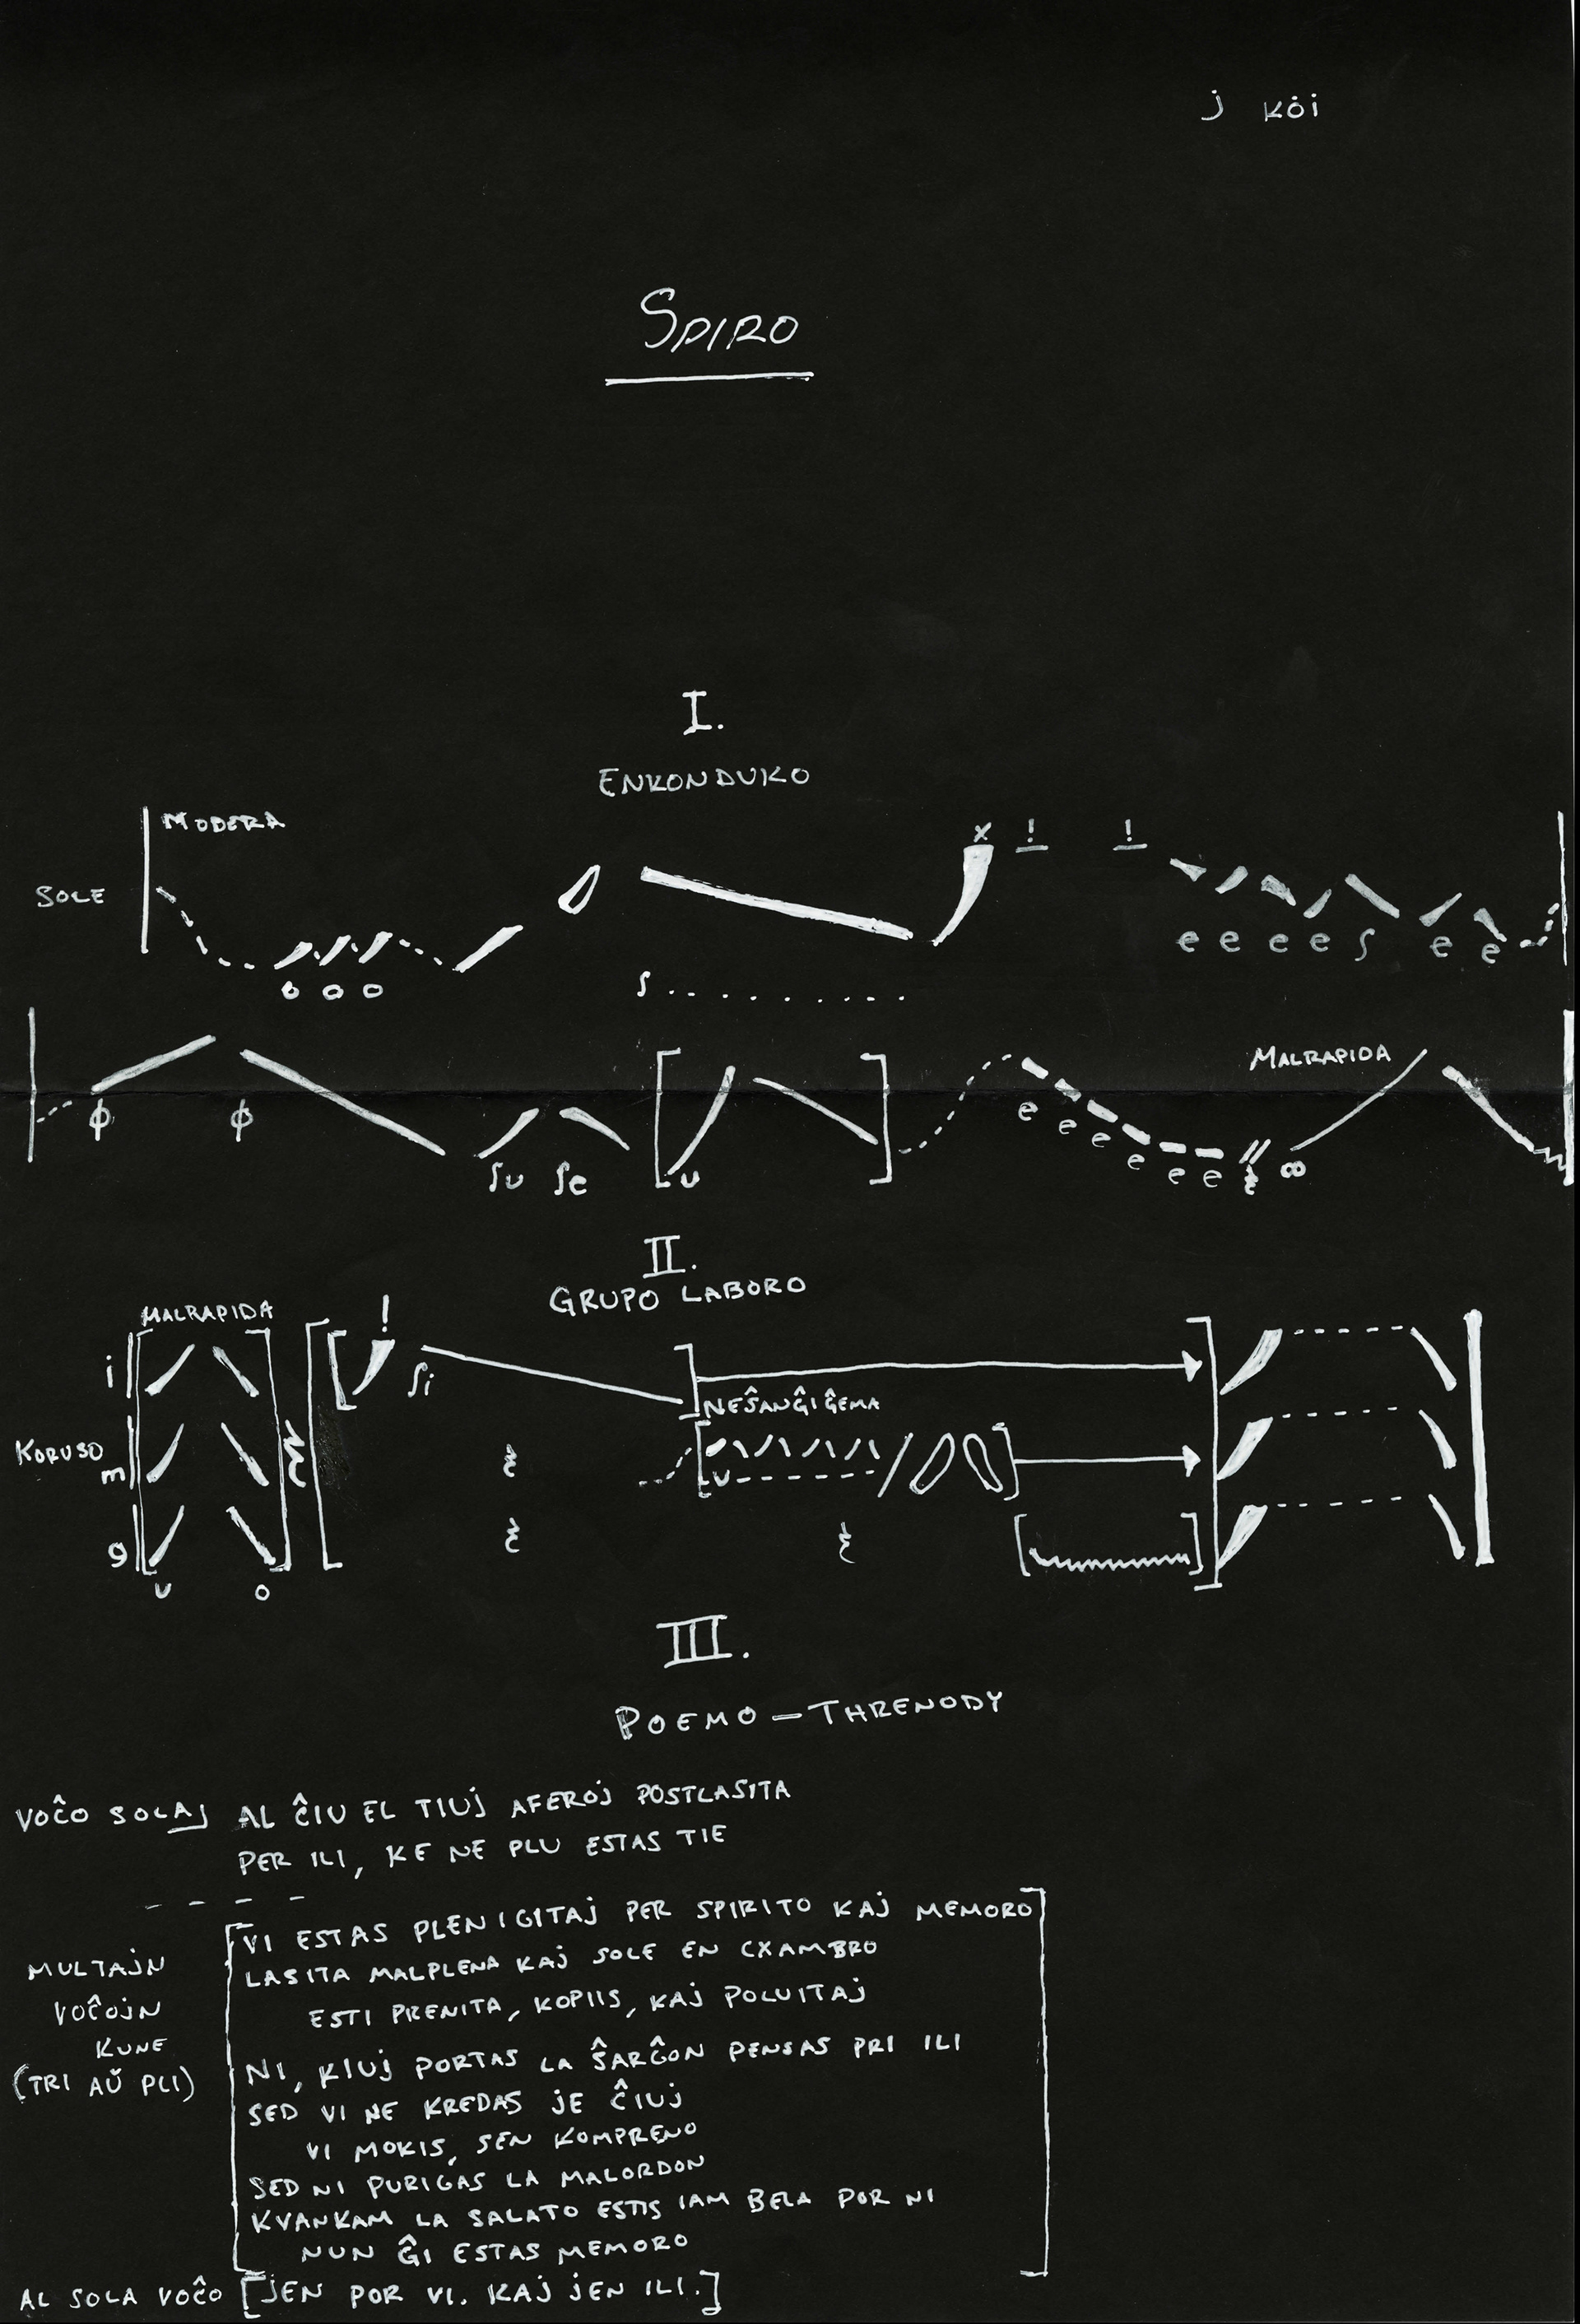 j köi
SPIRO
I.
ENKONDUKO
MODERA
SOLE
x ! !
o o o
e e e e ʃ e e
ʃ
MALRAPIDA
ɸ ɸ
ʃu ʃe
u
e e e e e e
∞
II.
GRUPO LABORO
MALRAPIDA
!
i
ʃi
NEŜANĜIĜEMA
KORUSO
m
u
g
u o
III.
POEMO – THRENODY
VOĈO SOLAJ AL ĈIU EL TIUJ AFEROJ POSTLASITA
PER ILI, KE NE PLU ESTAS TIE
VI ESTAS PLENIGITAJ PER SPIRITO KAJ MEMORO
LASITA MALPLENA KAJ SOLE EN CXAMBRO
ESTI PRENITA, KOPIIS, KAJ POLUITAJ
NI, KIUJ PORTAS LA ŜARĜON PENSAS PRI ILI
SED VI NE KREDAS JE ĈIUJ
VI MOKIS, SEN KOMPRENO
SED NI PURIGAS LA MALORDON
KVANKAM LA SALATO ESTIS IAM BELA POR NI
NUN ĜI ESTAS MEMORO
MULTAJN
VOĈOJN
KUNE
(TRI AŬ PLI)
AL SOLA VOĈO [JEN POR VI. KAJ JEN ILI.]